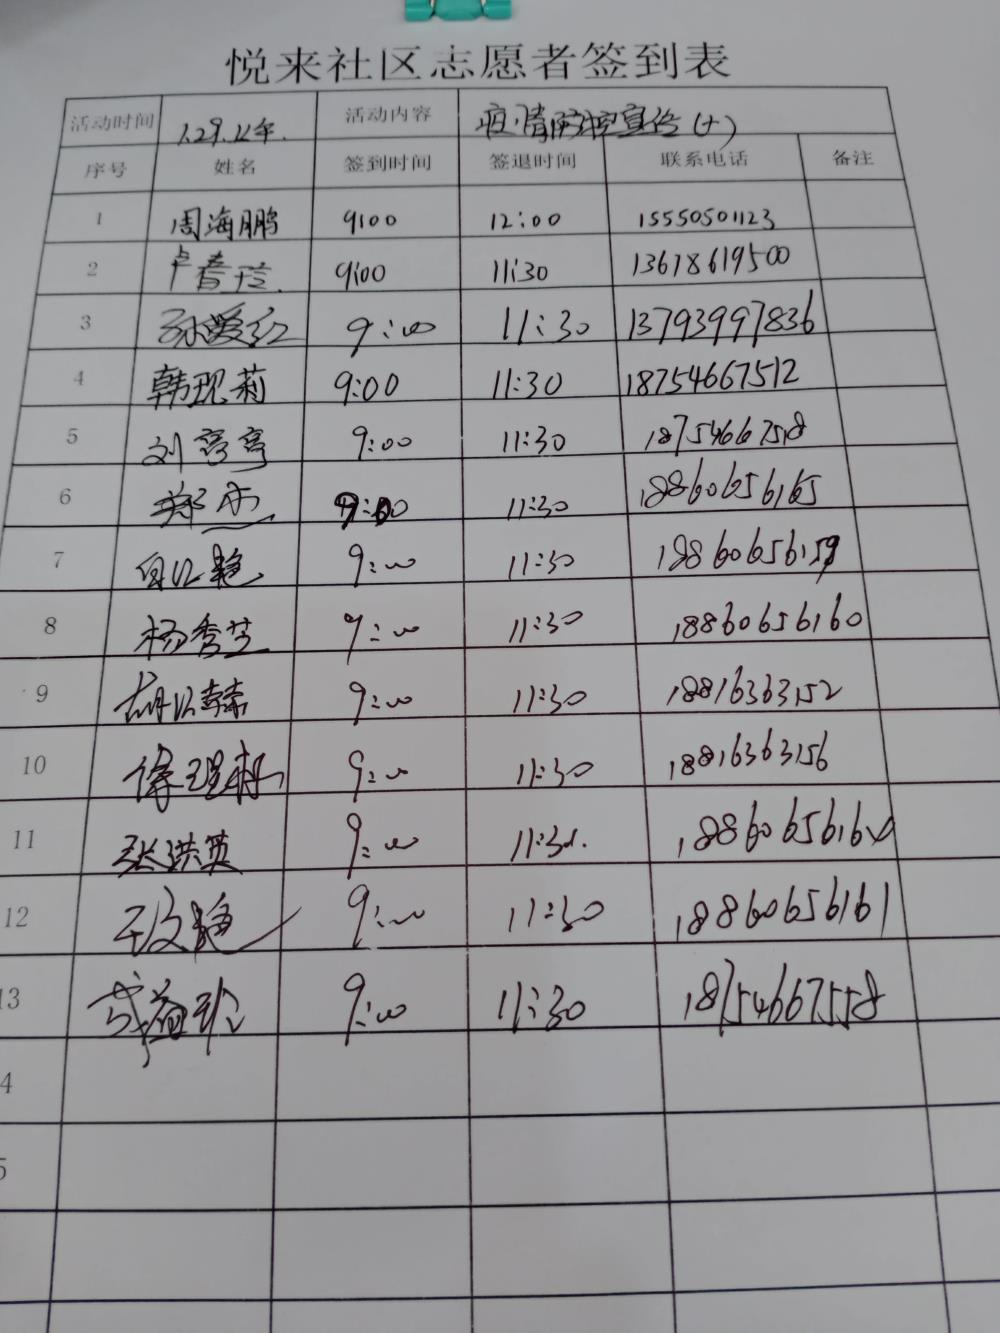 悦来社区志愿者签到表
活动时间 1.29.上午. 活动内容 疫情防控宣传(十)
序号 姓名 签到时间 签退时间 联系电话 备注
1 周海鹏 9:00 12:00 15550501123
2 卢春玲 9:00 11:30 13618619500
3 孙爱红 9:00 11:30 13793997836
4 韩现莉 9:00 11:30 18754667512
5 刘亭亭 9:00 11:30 18754667518
6 郑杰 9:00 11:30 18860656165
7 9:00 11:30 18860656159
8 杨秀芝 9:00 11:30 18860656160
9 9:00 11:30 18816363152
10 9:00 11:30 18816363156
11 张洪英 9:00 11:30
12 9:00 11:30 18860656161
13 9:00 11:30 18754667558
4
5